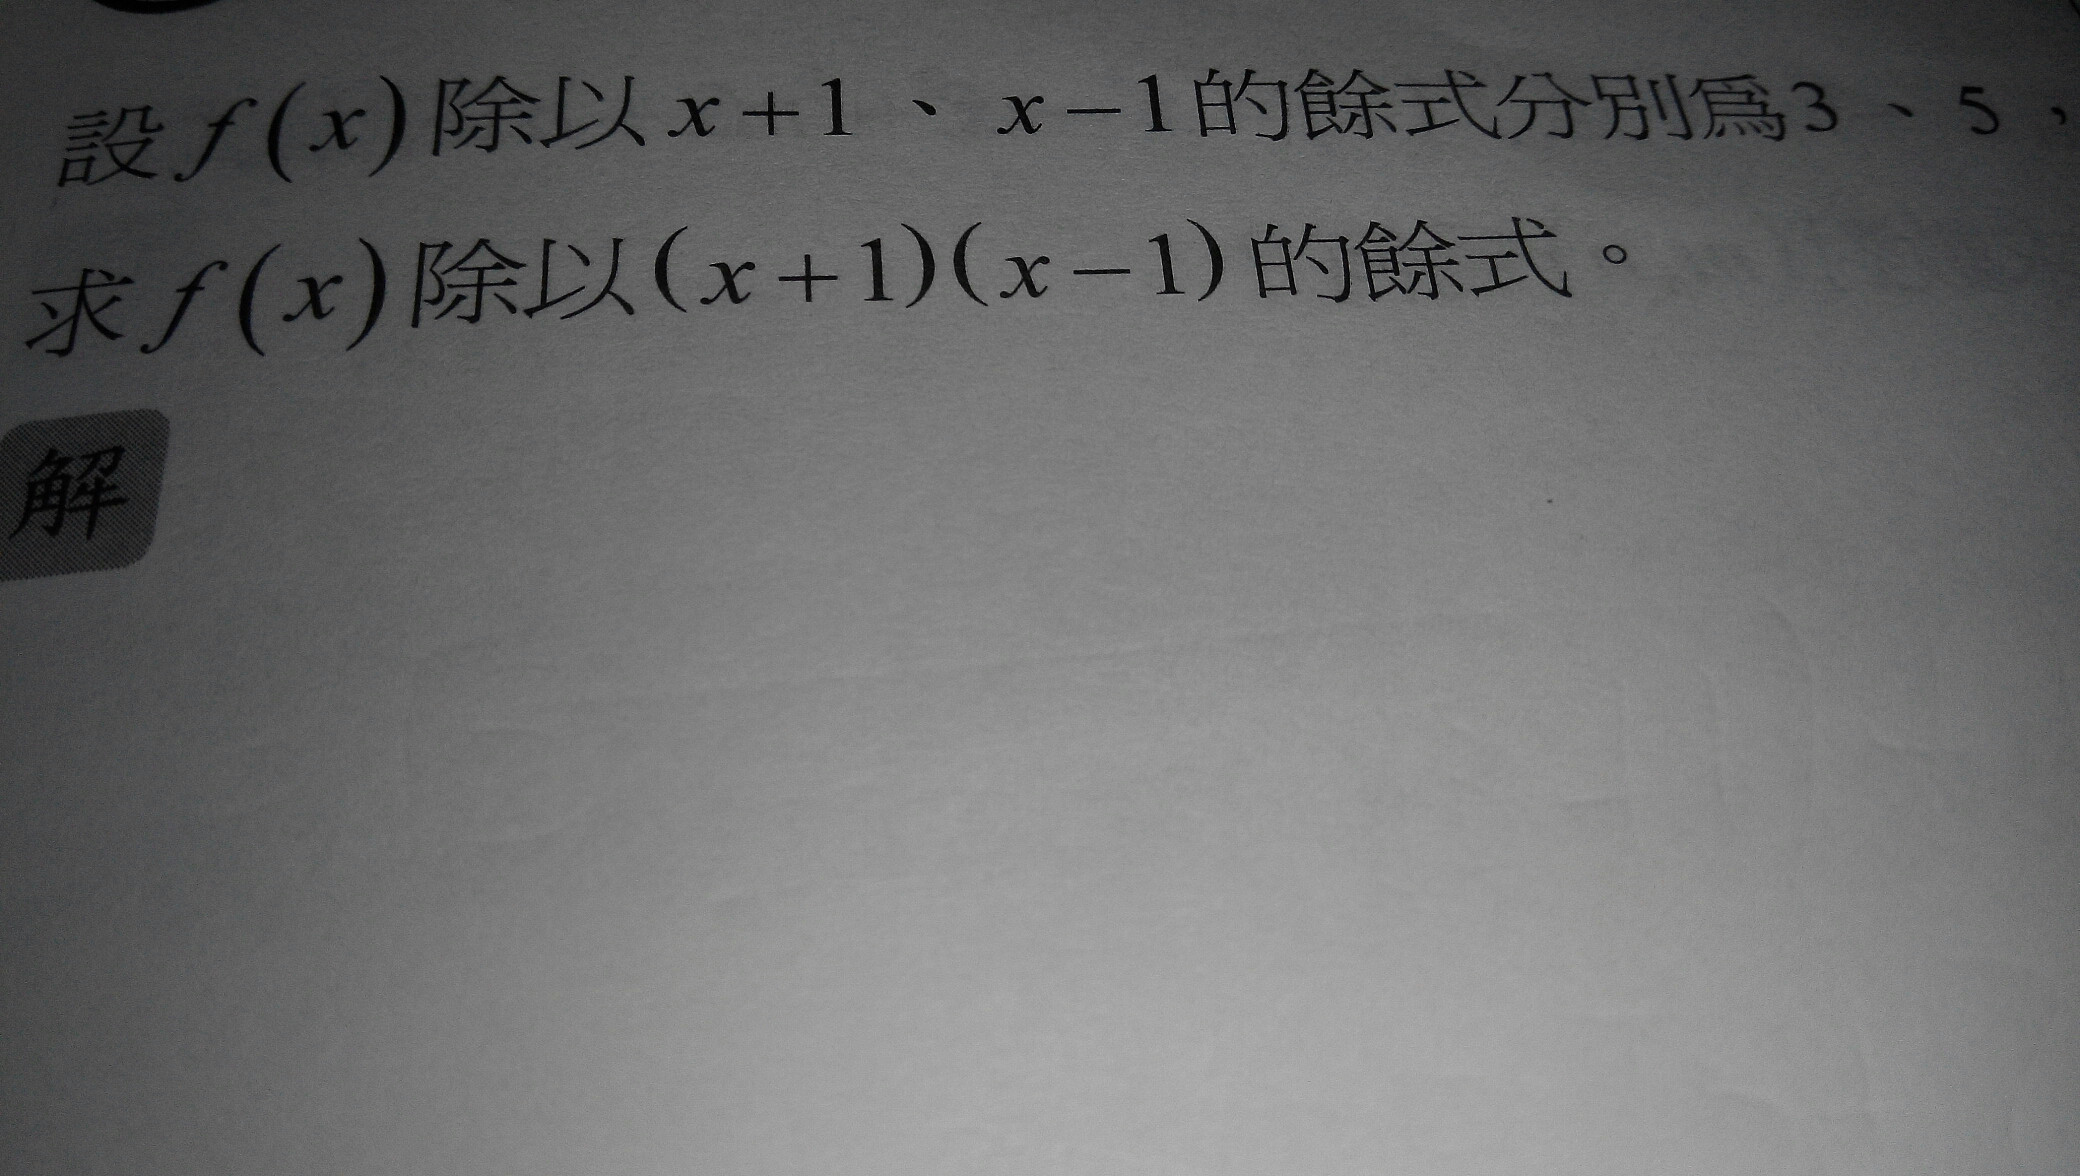 設 f(x) 除以 x+1、x−1 的餘式分別爲 3、5，
求 f(x) 除以 (x+1)(x−1) 的餘式。
解